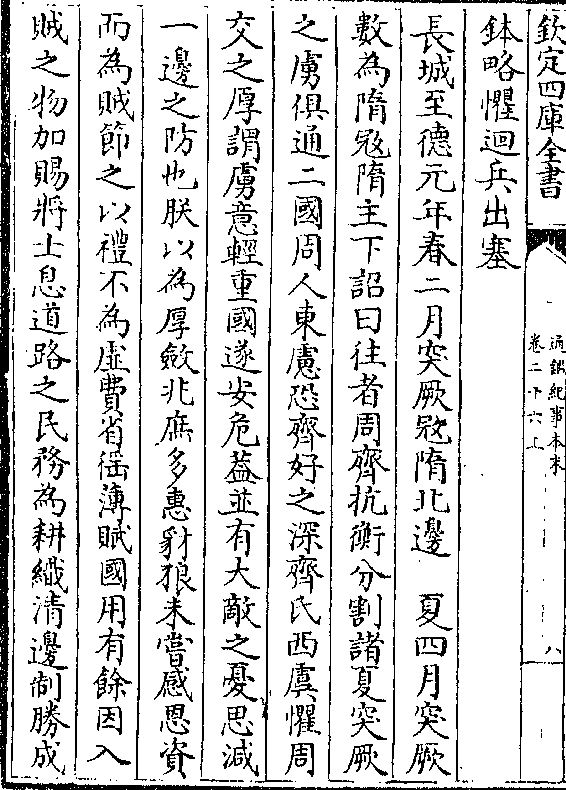 欽定四庫全書
通鑑紀事本末
卷二十六上
八
鉢略懼迴兵出塞
長城至德元年春二月突厥㓂隋北邊　夏四月突厥
數為隋㓂隋主下詔曰往者周齊抗衡分割諸夏突厥
之虜俱通二國周人東慮恐齊好之深齊氏西虞懼周
交之厚謂虜意輕重國遂安危葢並有大敵之憂思減
一邊之防也朕以為厚斂兆庶多惠豺狼未嘗感恩資
而為賊節之以禮不為虛費省徭薄賦國用有餘因入
賊之物加賜將士息道路之民務為耕織清邊制勝成